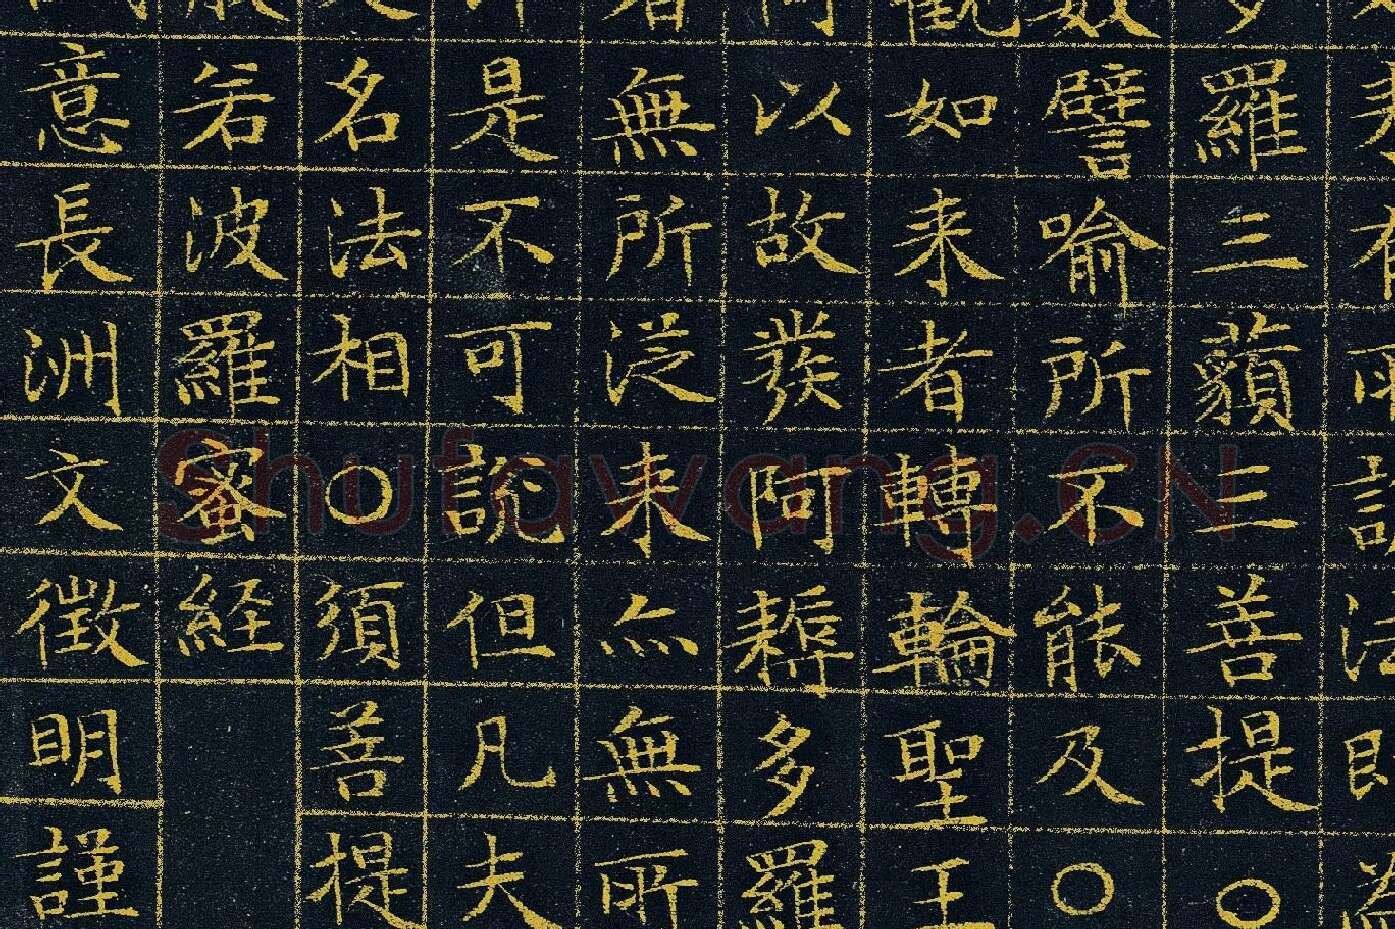 来有所説法即為
羅三藐三菩提○
譬喻所不能及○
如来者轉輪聖王
以故發阿耨多羅
者無所従来亦無所
是不可說但凡夫
名法相○須菩提
若波羅蜜経
意長洲文徵明謹
Shufawang.CN